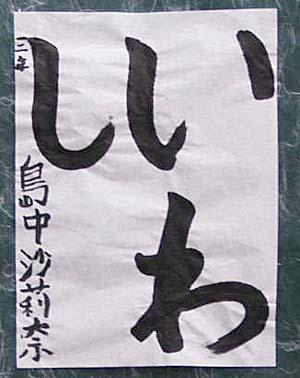 いわ
し
三年
島中沙莉奈